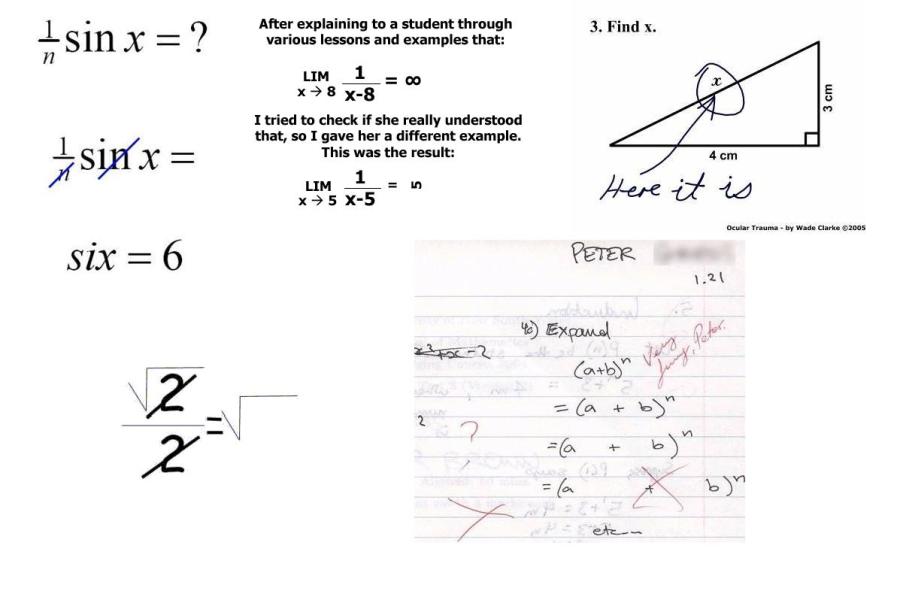 1/n sin x = ?
1/n sin x =
six = 6
√2/2 = √
After explaining to a student through
various lessons and examples that:
LIM x→8 1/x-8 = ∞
I tried to check if she really understood
that, so I gave her a different example.
This was the result:
LIM x→5 1/x-5 = 5
3. Find x.
x
3 cm
4 cm
Here it is
Ocular Trauma - by Wade Clarke ©2005
PETER
1.21
4c) Expand
x³+x-2
(a+b)ⁿ
Very funny, Peter.
= (a + b)ⁿ
2
?
=(a + b)ⁿ
= (a + b)ⁿ
etc...